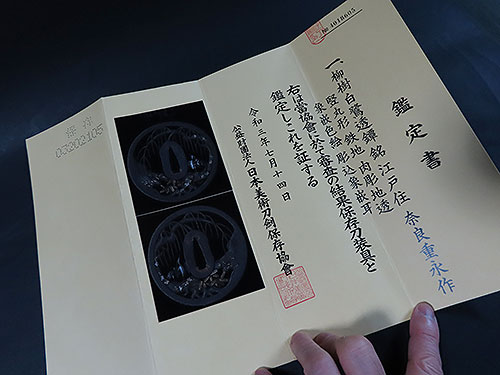 № 1018605
鑑定書
一、柳樹白鷺透鐔 銘 江戸住 奈良重永作
竪丸形 鉄地 肉彫地透
象嵌色絵 彫込象嵌耳
右は當協會に於て審査の結果保存刀装具と
鑑定しこれを証する
令和三年七月十四日
公益財團法人日本美術刀剣保存協會
保存
03202105